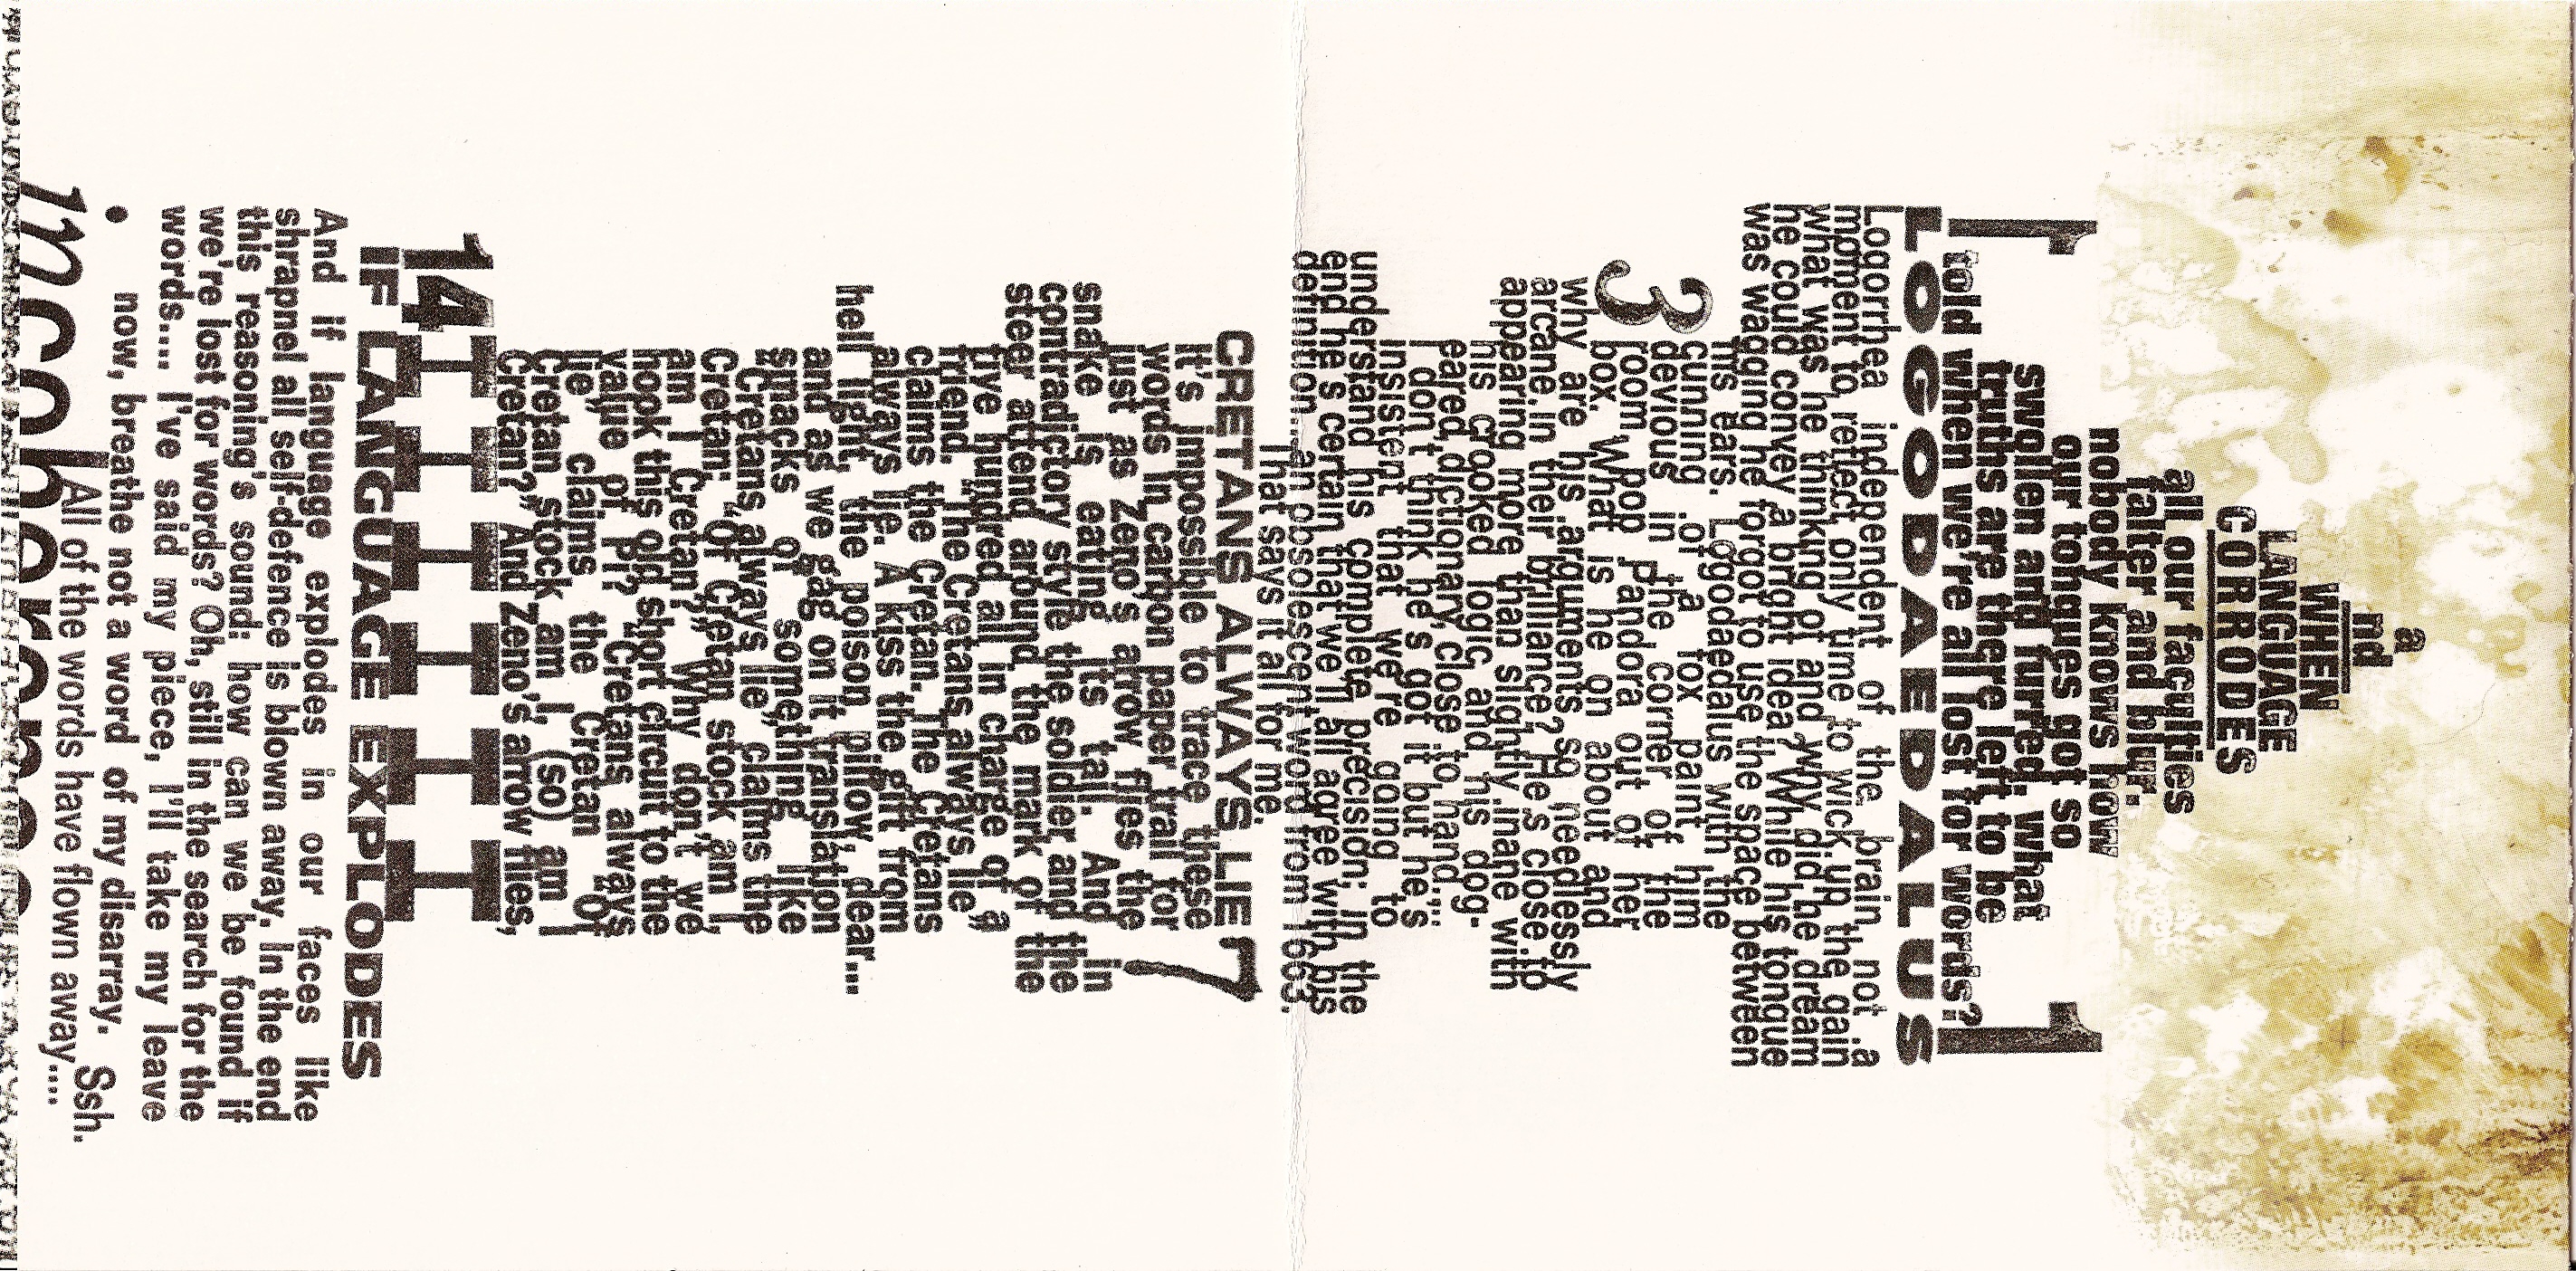 a
nd
WHEN
LANGUAGE
CORRODES
all our faculties
falter and blur.
nobody knows how
our tongues got so
swollen and furred. what
truths are there left to be
told when we're all lost for words?
1 1
LOGODAEDALUS
Logorrhea independent of the brain, not a
moment to reflect only time to wick up the gain
what was he thinking of and why did he dream
he could convey a bright idea? While his tongue
was wagging he forgot to use the space between
his ears. Logodaedalus with the
cunning of a fox paint him
devious in the corner of the
3 room pop Pandora out of her
box. What is he on about and
why are his arguments so needlessly
arcane in their brilliance? He's close to
appearing more than slightly inane with
his crooked logic and his dog-
eared dictionary, close to hand,
I don't think he's got it but he's
insistent that we're going to
understand his complete precision; in the
end he's certain that we'll all agree with his
definition... an obsolescent word from 1663.
That says it all for me.
CRETANS ALWAYS LIE 7
It's impossible to trace these
words in carbon paper trail for
just as Zeno's arrow flies the
snake is eating its tail. And in
contradictory style the soldier and the
steer attend around the mark of the
five hundred all in charge of a
friend. "The Cretans always lie,"
claims the Cretan. The Cretans
always lie. A kiss the gift from
hell light, the poison pillow, dear...
and as we gag on it translation
smacks of something like
"Cretans always lie," claims the
Cretan. "Of Cretan stock am I,
am I Cretan?" Why don't we
hook this old short circuit to the
value of Pi? "Cretans always
lie," claims the Cretan "Of
Cretan stock am I, (so) am I
Cretan?" And Zeno's arrow flies,
14 I I I I I I
IF LANGUAGE EXPLODES
And if language explodes in our faces like
shrapnel all self-defence is blown away. In the end
this reasoning's sound: how can we be found if
we're lost for words? Oh, still in the search for the
words.... I've said my piece, I'll take my leave
now, breathe not a word of my disarray. Ssh.
All of the words have flown away....